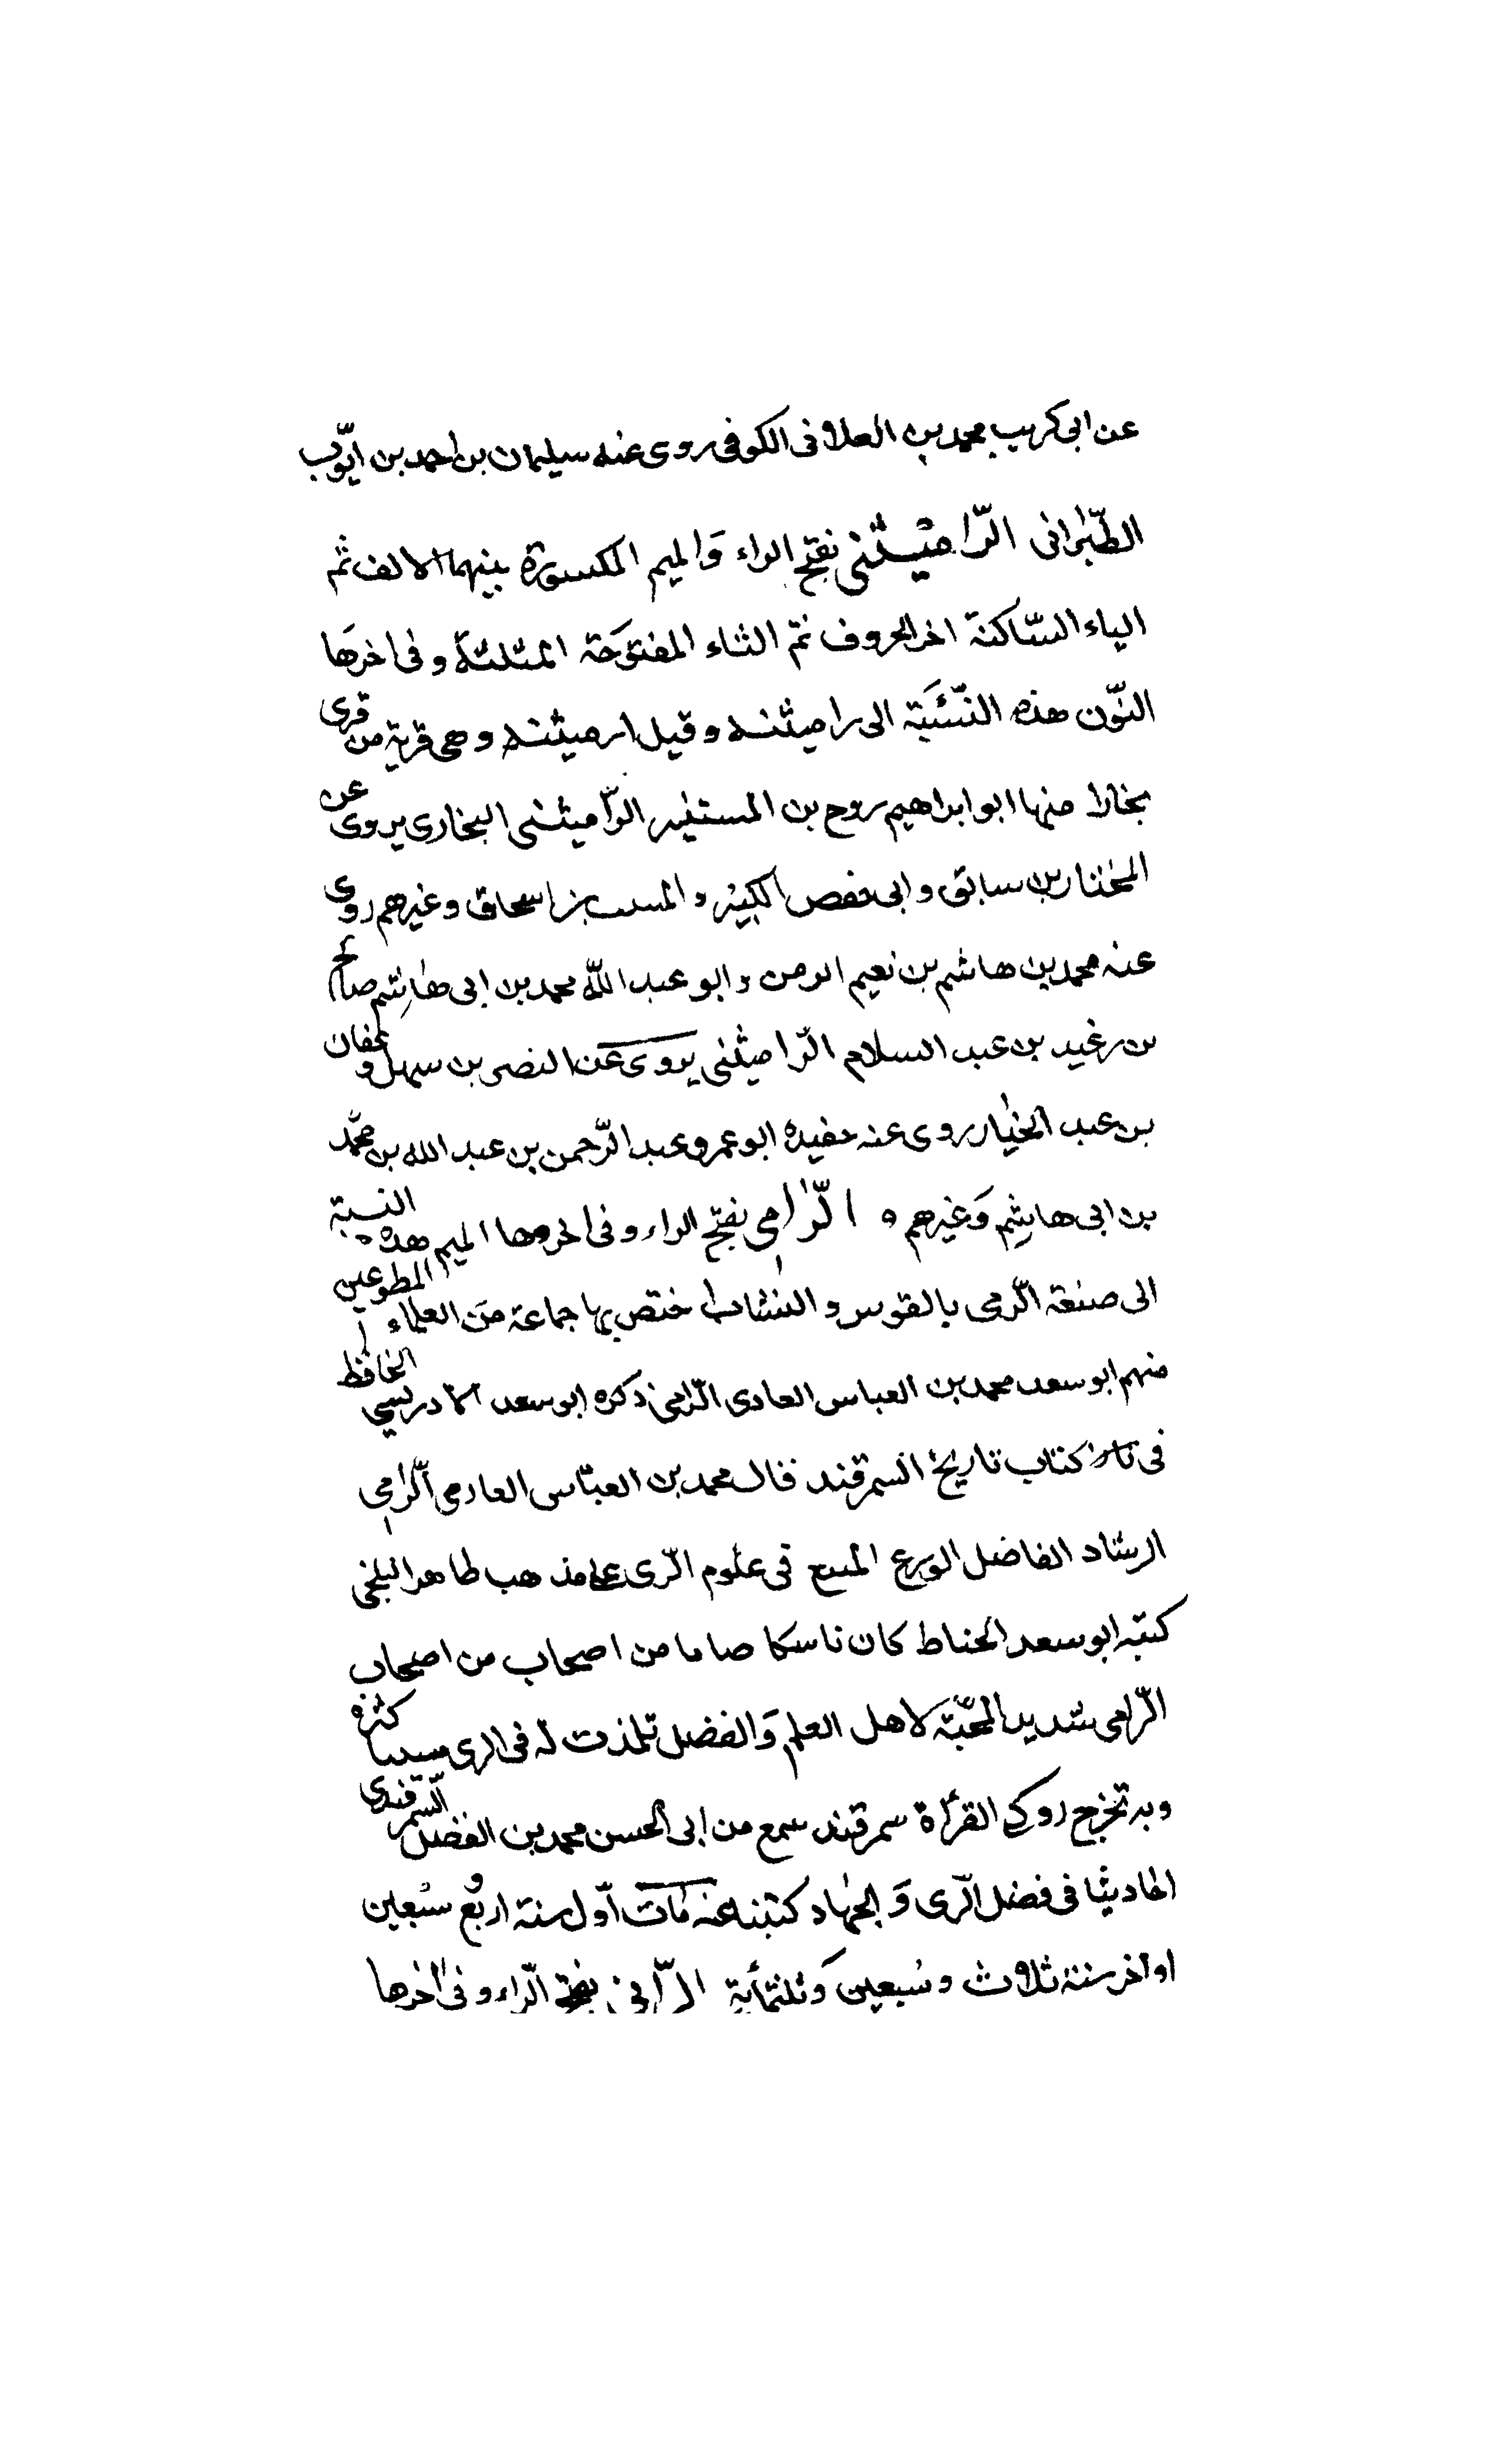 عن ابى كريب محمد بن العلا فى الكوفى روى عنه سليمان بن احمد بن ايّوب
الطّبرانى الرّاميثنى بفتح الراء وَالميم المكسورة بينهما الالف ثم
الياء السّاكنة اخر الحروف ثمّ الثاء المفتوَحة المثلثة وفى اخرهَا
النوّن هذه النّسَبة الى راميثنه وقيل ارميثنه وهى قرية من قرى
بخارا منها ابو ابراهيم روح بن المستنير الرّاميثنى البخارى يروى عن
المختار بن سابق وابى حفص الكبير والمسب بن اسحاق وغيرهم روى
عنه محمد بن هاشم بن نعيم الرمن وابو عبد اللّه محمد بن ابى هاشم صالح
بن رغيد بن عبد السلام الرّاميثنى يروى عن النضر بن سهل وعفان
بن عبد الخيار روى عنه حفيده ابو عمرو عبد الرّحمن بن عبد الله بن محمّد
بن ابى هاشِم وَغيرهم ه الرّامى بفتح الراء وفى اخروها الميم هذه النسبة
الى صنعة الرّمى بالقوس والنشاب اختص بها جماعة منَ العلماء المطوعين
منهم ابو سعد محمد بن العباس العادى الرّامى ذكره ابو سعد الادريسي الحافظ
فى كتاب تاريخ السمرقند فقال محمد بن العبّاس العادمى الرّامى
الرشاد الفاضل الورع فى علوم الرّمى على مذهب طاهر البلخى
كتبه ابو سعد الحناط كان ناسكا من اصحاب من اصحاب
الرّامى شديد المحبّة لاهل العلم وَالفضل تلمذت له فى الرمى كثره
وبه تخرج القرأة سمرقند سمع من ابى الحسن محمد بن الفضل السّمرقندى
احاديثا فى فضل الرّمى وَالجهاد كتبنا عنه مات اوّل سنة اربع وسَبعين
او اخر سنة ثلاث وسُبعين وَثلثمأية الرّانى بفتح الرّاء وفى اخرها